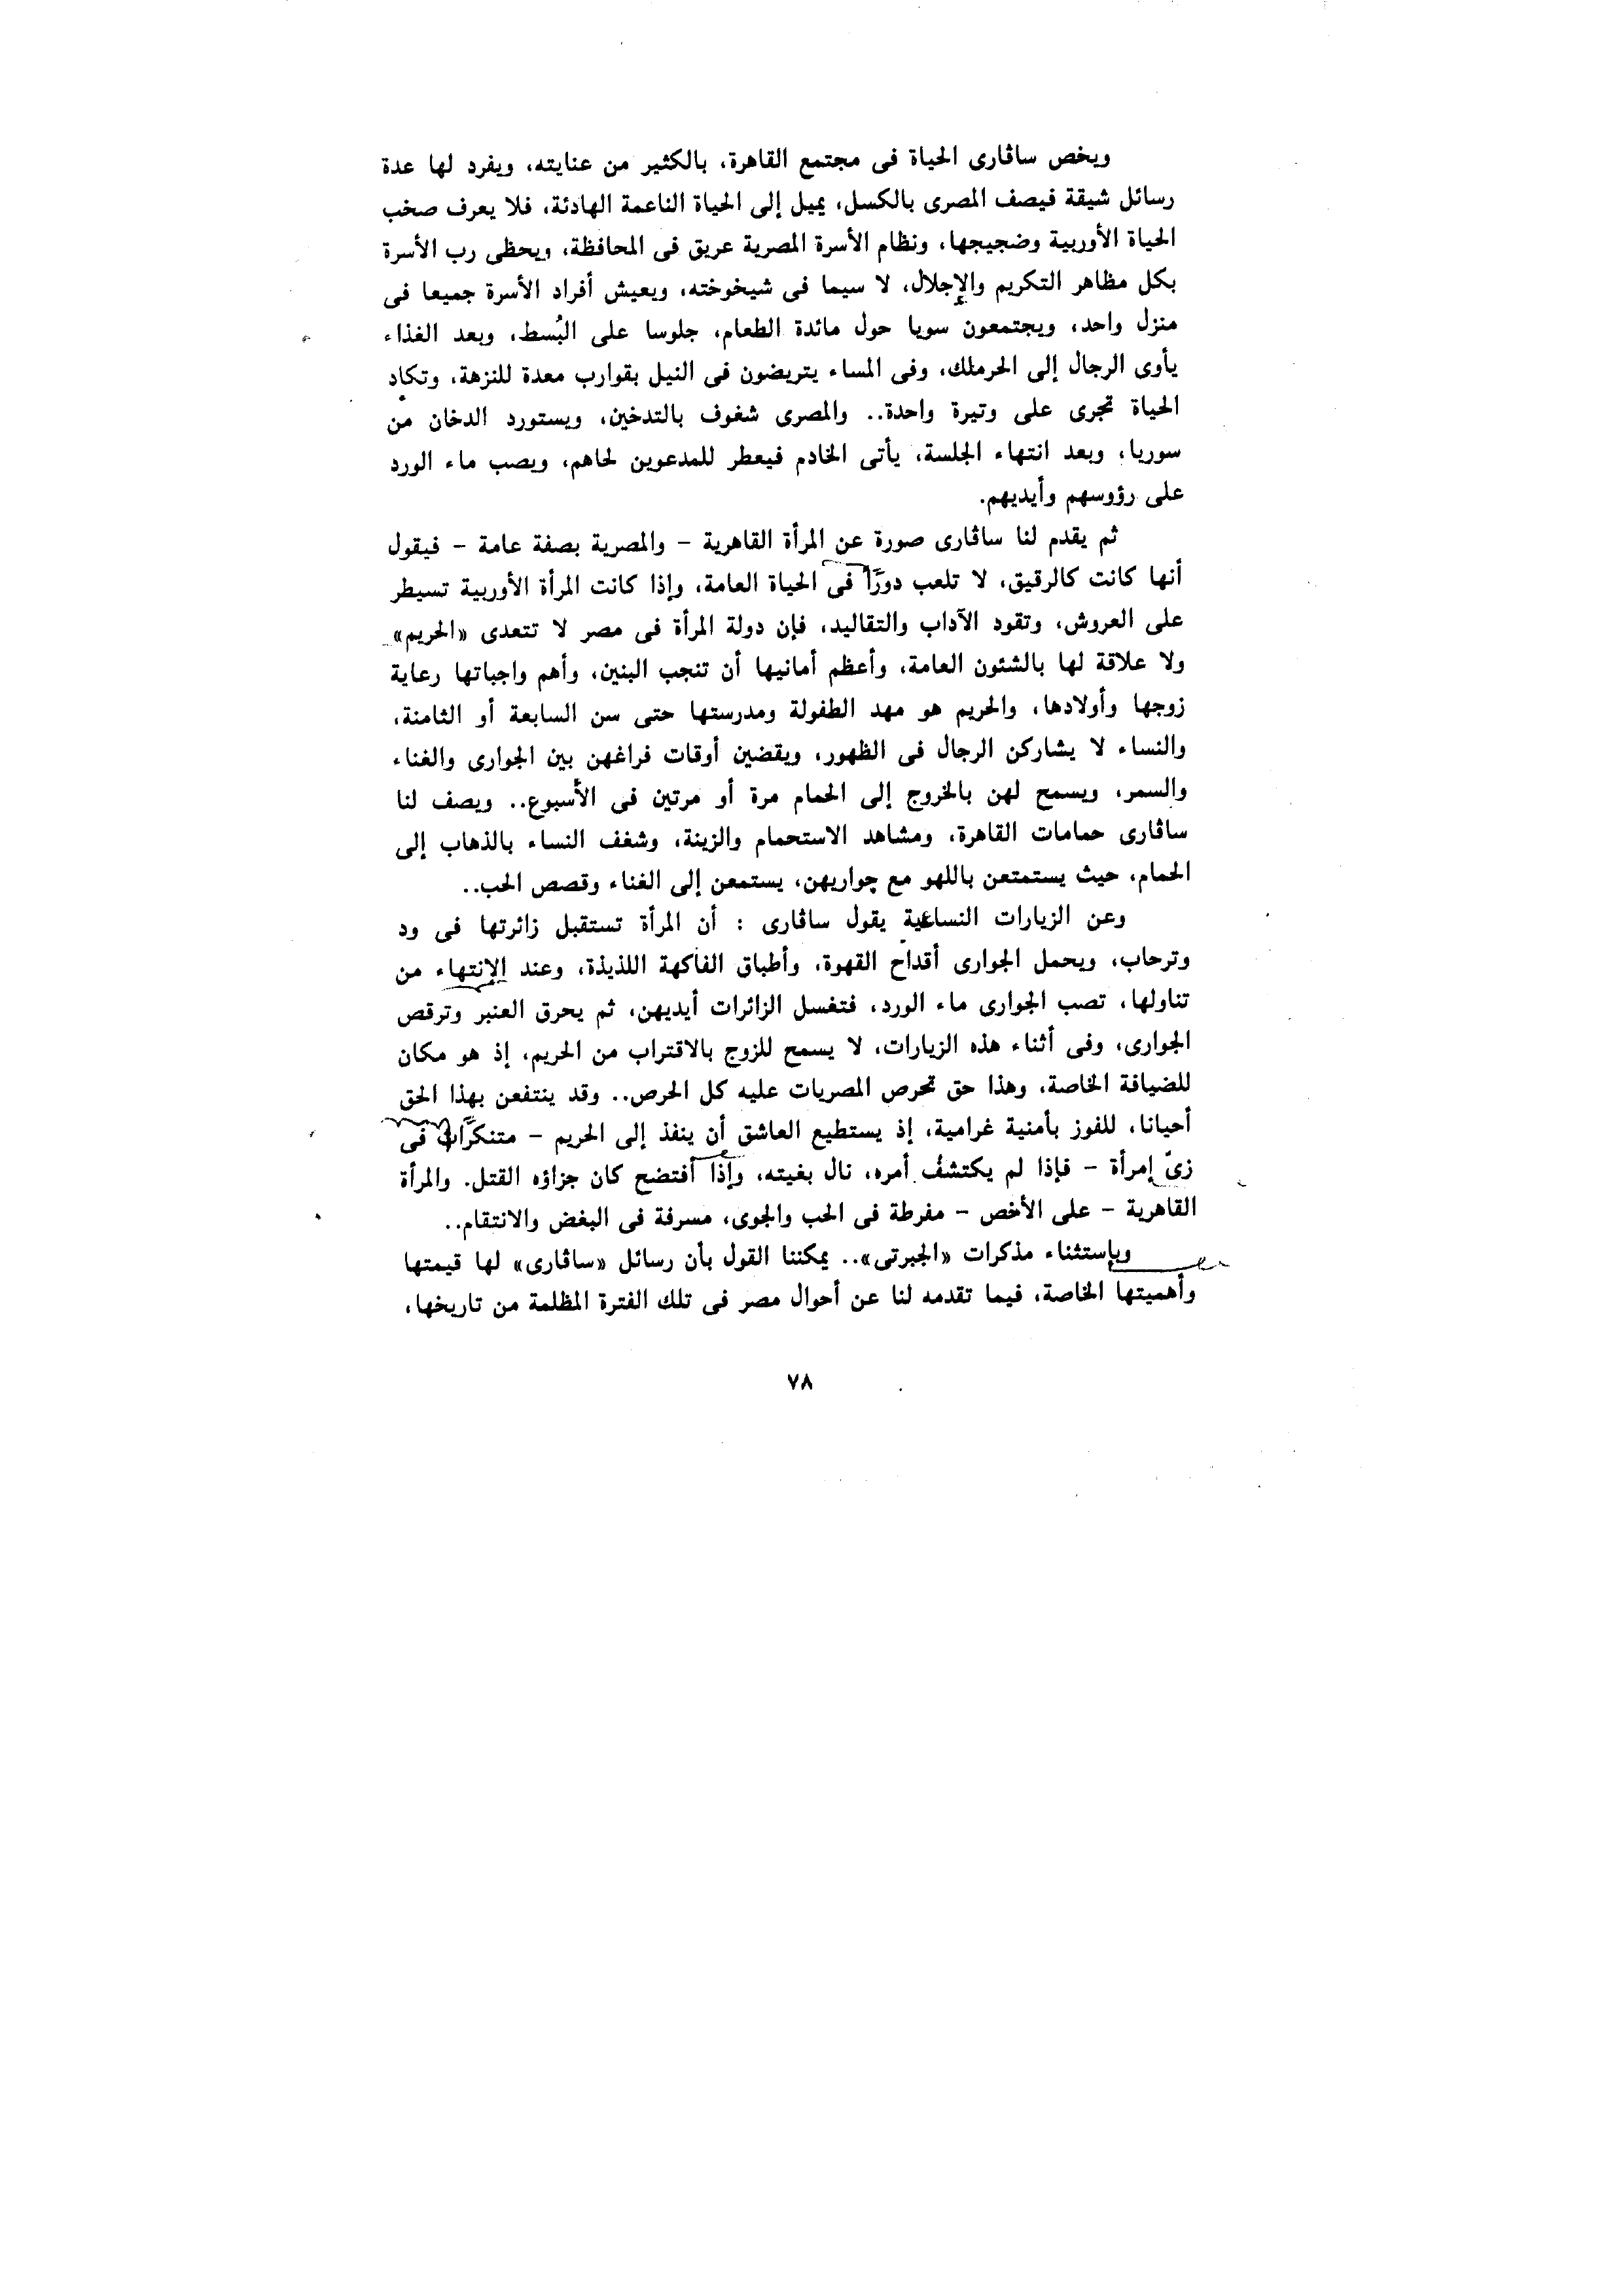 ويخص ساڤارى الحياة فى مجتمع القاهرة، بالكثير من عنايته، ويفرد لها عدة
رسائل شيقة فيصف المصرى بالكسل، يميل إلى الحياة الناعمة الهادئة، فلا يعرف صخب
الحياة الأوربية وضجيجها، ونظام الأسرة المصرية عريق فى المحافظة، ويحظى رب الأسرة
بكل مظاهر التكريم والإجلال، لا سيما فى شيخوخته، ويعيش أفراد الأسرة جميعا فى
منزل واحد، ويجتمعون سويا حول مائدة الطعام، جلوسا على البُسط، وبعد الغذاء
يأوى الرجال إلى الحرملك، وفى المساء يتريضون فى النيل بقوارب معدة للنزهة، وتكاد
الحياة تجرى على وتيرة واحدة.. والمصرى شغوف بالتدخين، ويستورد الدخان من
سوريا، وبعد انتهاء الجلسة، يأتى الخادم فيعطر للمدعوين لحاهم، ويصب ماء الورد
على رؤوسهم وأيديهم.
ثم يقدم لنا ساڤارى صورة عن المرأة القاهرية – والمصرية بصفة عامة – فيقول
أنها كانت كالرقيق، لا تلعب دورًا فى الحياة العامة، وإذا كانت المرأة الأوربية تسيطر
على العروش، وتقود الآداب والتقاليد، فإن دولة المرأة فى مصر لا تتعدى «الحريم»
ولا علاقة لها بالشئون العامة، وأعظم أمانيها أن تنجب البنين، وأهم واجباتها رعاية
زوجها وأولادها، والحريم هو مهد الطفولة ومدرستها حتى سن السابعة أو الثامنة،
والنساء لا يشاركن الرجال فى الظهور، ويقضين أوقات فراغهن بين الجوارى والغناء
والسمر، ويسمح لهن بالخروج إلى الحمام مرة أو مرتين فى الأسبوع.. ويصف لنا
ساڤارى حمامات القاهرة، ومشاهد الاستحمام والزينة، وشغف النساء بالذهاب إلى
الحمام، حيث يستمتعن باللهو مع جواريهن، يستمعن إلى الغناء وقصص الحب..
وعن الزيارات النسائية يقول ساڤارى : أن المرأة تستقبل زائرتها فى ود
وترحاب، ويحمل الجوارى أقداح القهوة، وأطباق الفاكهة اللذيذة، وعند الإنتهاء من
تناولها، تصب الجوارى ماء الورد، فتغسل الزائرات أيديهن، ثم يحرق العنبر وترقص
الجوارى، وفى أثناء هذه الزيارات، لا يسمح للزوج بالاقتراب من الحريم، إذ هو مكان
للضيافة الخاصة، وهذا حق تحرص المصريات عليه كل الحرص.. وقد ينتفعن بهذا الحق
أحيانا، للفوز بأمنية غرامية، إذ يستطيع العاشق أن ينفذ إلى الحريم – متنكرًا فى
زىّ إمرأة – فإذا لم يكتشف أمره، نال بغيته، وإذا أفتضح كان جزاؤه القتل. والمرأة
القاهرية – على الأخص – مفرطة فى الحب والجوى، مسرفة فى البغض والانتقام..
وبإستثناء مذكرات «الجبرتى».. يمكننا القول بأن رسائل «ساڤارى» لها قيمتها
وأهميتها الخاصة، فيما تقدمه لنا عن أحوال مصر فى تلك الفترة المظلمة من تاريخها،
٧٨